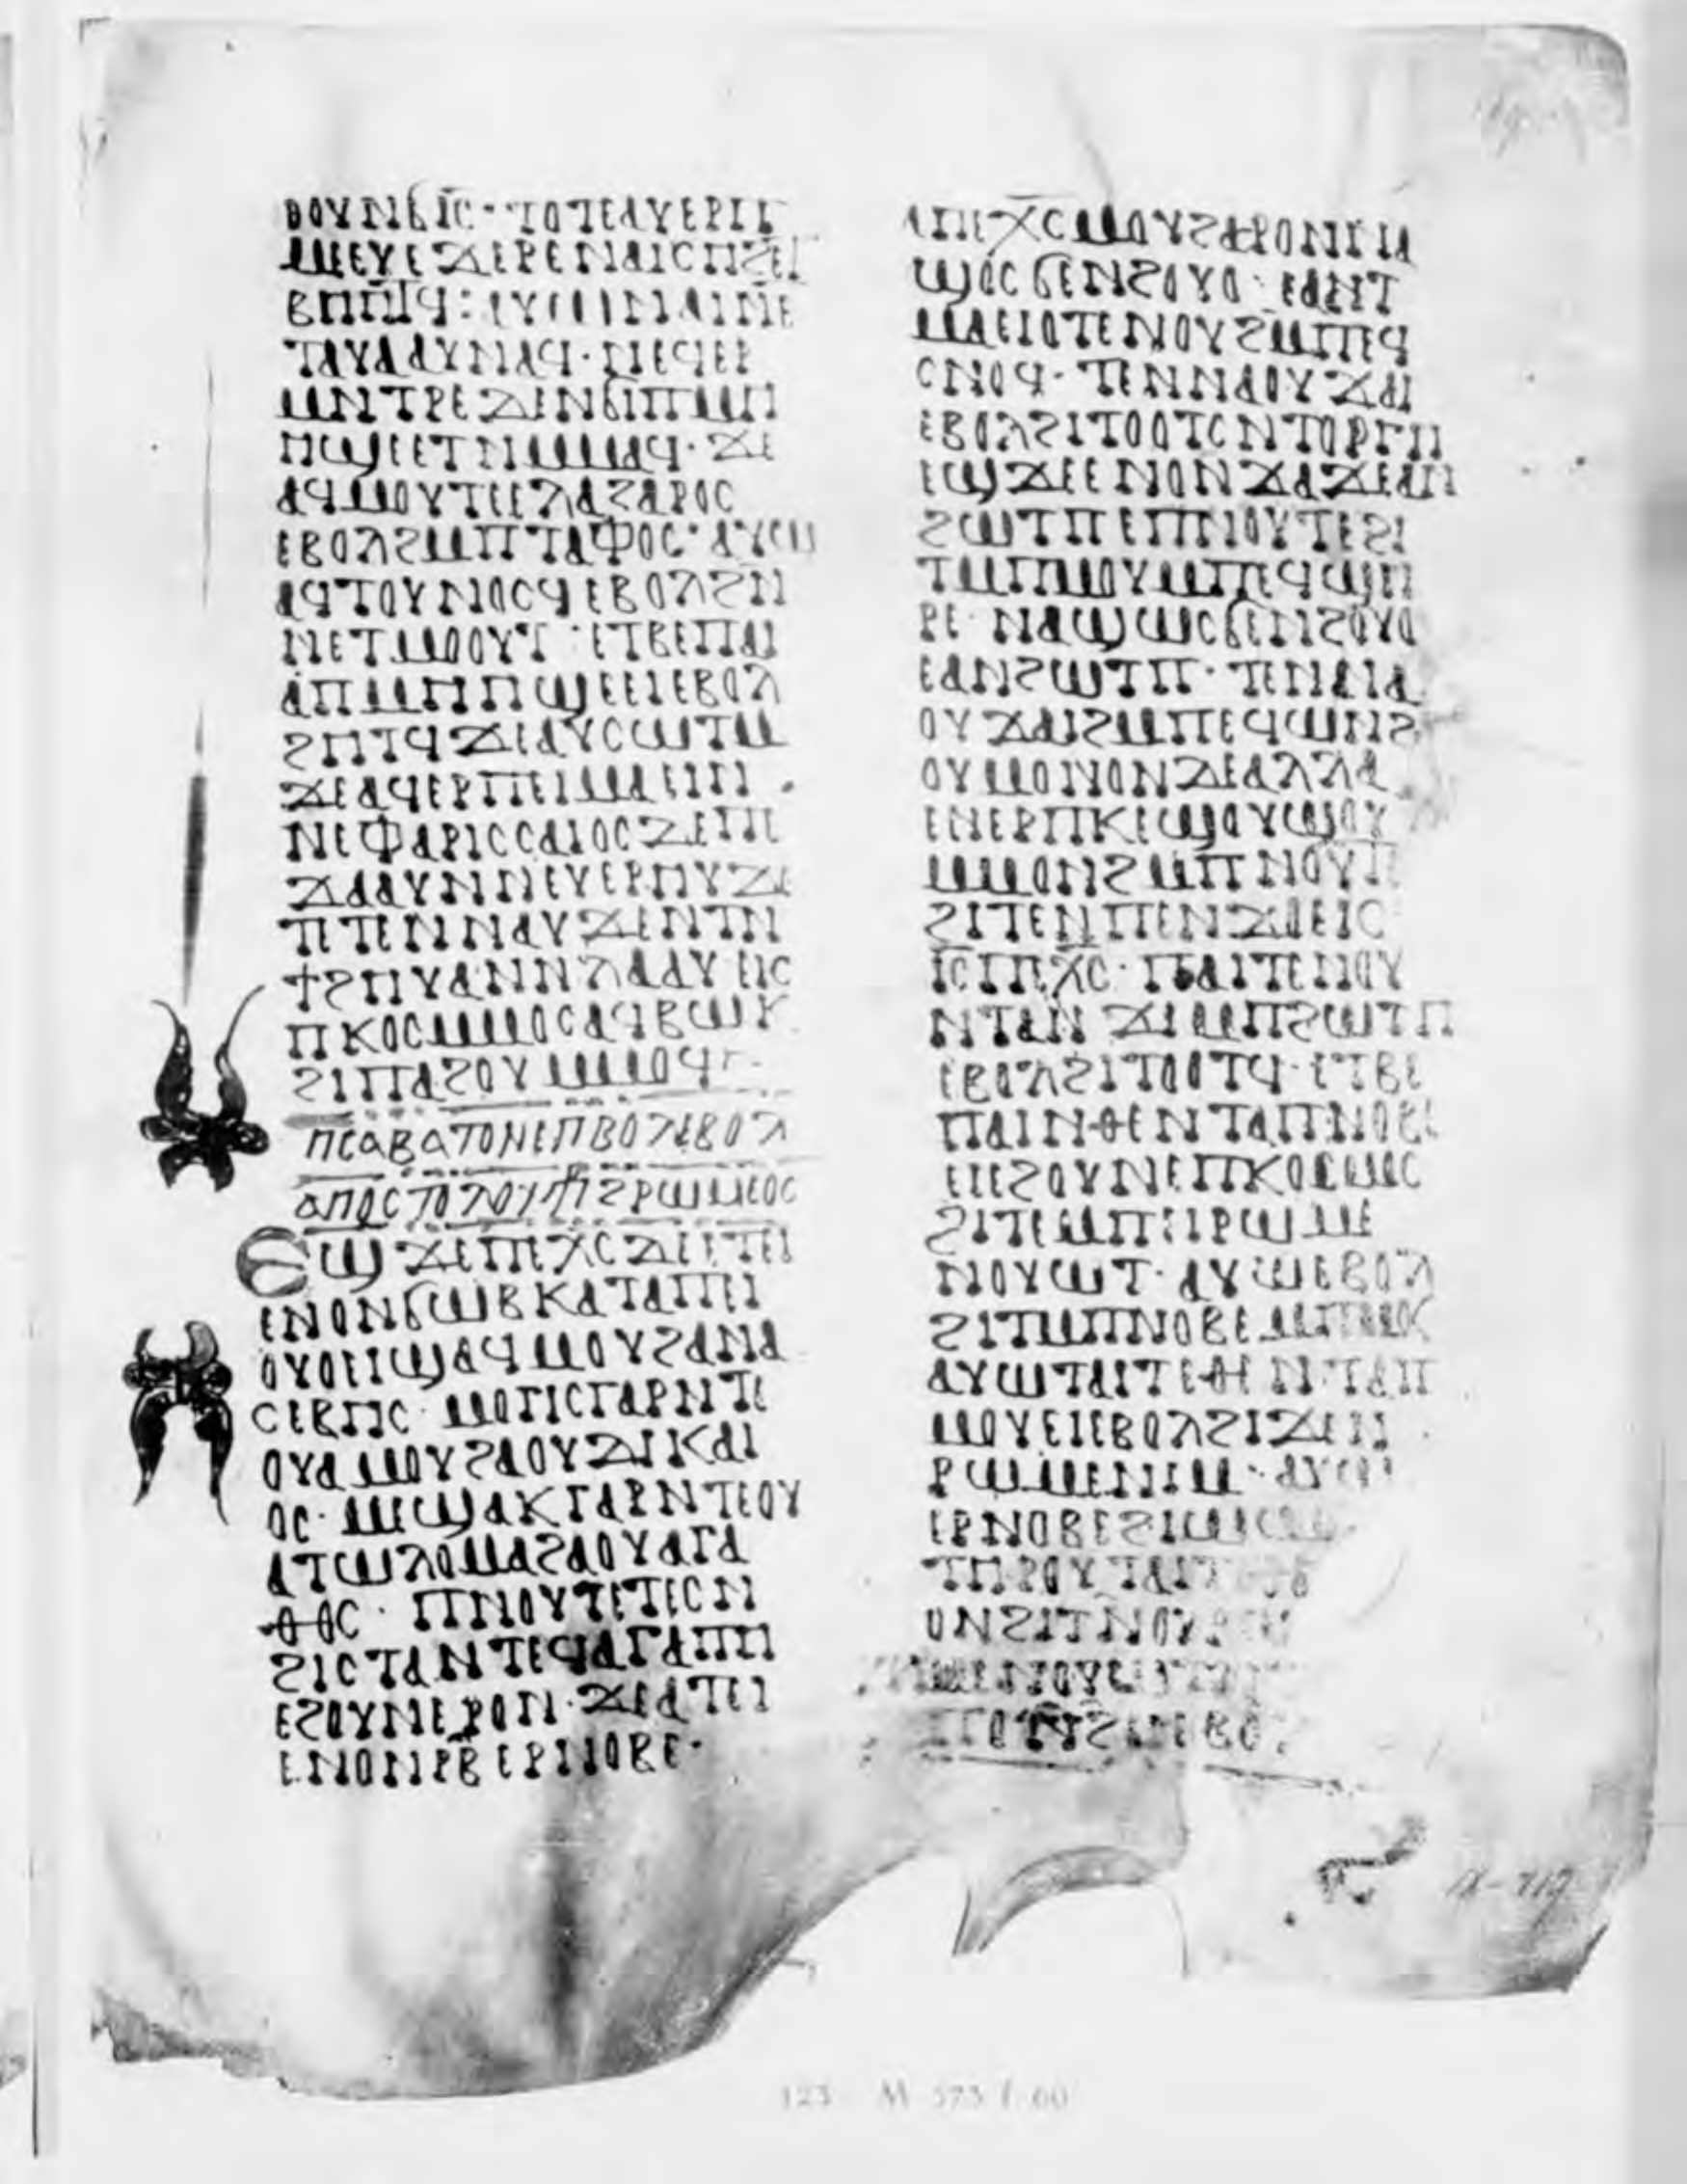 ⲃⲟⲩⲛϭⲓⲓ̅ⲥ̅· ⲧⲟⲧⲉⲁⲩⲉⲣⲡ
ⲙⲉⲉⲩⲉϫⲉⲣⲉⲛⲁⲓⲥⲏϩ
ⲃⲏⲏⲧϥ:
ⲧⲁⲩⲁⲁⲩⲛⲁϥ· ⲛⲉϥⲉⲣ
ⲙⲛⲧⲣⲉⲇⲉⲛϭⲓⲡⲙⲏ
ⲏϣⲉⲉⲧⲛⲙⲙⲁϥ· ϫⲉ
ⲁϥⲙⲟⲩⲧⲉⲉⲗⲁⲍⲁⲣⲟⲥ
ⲉⲃⲟⲗϩⲙⲡⲧⲁⲫⲟⲥ· ⲁⲩⲱ
ⲁϥⲧⲟⲩⲛⲟⲥϥⲉⲃⲟⲗϩⲛ
ⲛⲉⲧⲙⲟⲟⲩⲧ· ⲉⲧⲃⲉⲡⲁⲓ
ⲁⲡⲙⲏⲏϣⲉⲉⲓⲉⲃⲟⲗ
ϩⲏⲧϥϫⲉⲁⲩⲥⲱⲧⲙ
ϫⲉⲁϥⲉⲣⲡⲉⲓⲙⲁⲉⲓⲛ·
ⲛⲉⲫⲁⲣⲓⲥⲥⲁⲓⲟⲥϭⲉⲡⲉ
ϫⲁⲁⲩⲛⲛⲉⲩⲉⲣⲏⲩϫⲉ
ⲧⲉⲧⲉⲛⲛⲁⲩϫⲉⲛⲧⲛ
ϯϩⲏⲩⲁⲛⲛⲗⲁⲁⲩ ⲉⲓⲥ
ⲡⲕⲟⲥⲙⲙⲟⲥⲁϥⲃⲱⲕ
ϩⲓⲡⲁϩⲟⲩⲙⲙⲟϥ
ⲡⲥⲁⲃⲁⲧⲟⲛⲉⲡⲃⲟⲗⲉⲃⲟⲗ
ⲁⲡⲟⲥⲧⲟⲗⲟⲩ ⲡϩⲣⲱⲙⲉⲟⲥ
ⲉϣϫⲉⲡⲉⲭ̅ⲥ̅ⲇⲉⲉⲧⲉⲓ
ⲉⲛⲟⲛϭⲱⲃⲕⲁⲧⲁⲡⲉⲓ
ⲟⲩⲟⲉⲓϣⲁϥⲙⲟⲩϩⲁⲛⲁ
ⲥⲉⲃⲏⲥ· ⲙⲟⲅⲓⲥⲅⲁⲣⲛⲧⲉ
ⲟⲩⲁⲙⲟⲩϩⲁⲟⲩⲇⲓⲕⲁⲓ
ⲟⲥ· ⲙⲉϣⲁⲕⲅⲁⲣⲛⲧⲉⲟⲩ
ⲁⲧⲱⲗⲟⲙⲁϩⲁⲟⲩⲁⲅⲁ
ⲑⲟⲥ· ⲡⲛⲟⲩⲧⲉⲧⲉⲥⲛ
ϩⲓⲥⲧⲁⲛⲧⲉϥⲁⲅⲁⲡⲏ
ⲉϩⲟⲩⲛⲉⲣⲟⲛ· ϫⲉⲁⲧⲉⲓ
ⲉⲛⲟⲛⲣⲉϥⲉⲣⲛⲟⲃⲉ·
ⲁⲡⲉⲭ̅ⲥ̅ⲙⲟⲩϩⲁⲣⲟⲛⲛⲛⲁ
ϣⲟⲥϭⲉⲛϩⲟⲩⲟ· ⲉⲁⲛⲧ
ⲙⲁⲉⲓⲟⲧⲉⲛⲟⲩϩⲙⲡⲉϥ
ⲥⲛⲟϥ· ⲧⲉⲛⲛⲁⲟⲩϫⲁⲓ
ⲉⲃⲟⲗϩⲓⲧⲟⲟⲧⲥⲛⲧⲟⲣⲅⲏ
ⲉϣϫⲉⲉⲛⲟⲛϫⲁϫⲉⲁⲛ
ϩⲱⲧⲡⲉⲡⲛⲟⲩⲧⲉϩⲓ
ⲧⲙⲡⲙⲟⲩⲙⲡⲉϥϣⲏ
ⲣⲉ· ⲛⲁϣⲱⲥϭⲉⲛϩⲟⲩⲟ
ⲉⲁⲛϩⲱⲧⲡ· ⲧⲉⲛⲛⲁ
ⲟⲩϫⲁⲓϩⲙⲡⲉϥⲱⲛϩ
ⲟⲩⲙⲟⲛⲟⲛⲇⲉⲁⲗⲗⲁ
ⲉⲛⲉⲣⲡⲕⲉϣⲟⲩϣⲟⲩ
ⲙⲙⲟⲛϩⲙⲡⲛⲟⲩⲧⲉ
ϩⲓⲧⲉⲛⲡⲉⲛϫⲟⲉⲓⲥ
ⲓ̅ⲥ̅ⲡⲉⲭ̅ⲥ̅· ⲡⲁⲓⲧⲉⲛⲟⲩ
ⲛⲧⲁⲛϫⲓⲙⲡϩⲱⲧⲡ
ⲉⲃⲟⲗϩⲓⲧⲟⲟⲧϥ· ⲉⲧⲃⲉ
ⲡⲁⲓⲛⲑⲉⲛⲧⲁⲡⲛⲟⲃⲉ
ⲉⲓⲉϩⲟⲩⲛⲉⲡⲕⲟⲥⲙⲟⲥ
ϩⲓⲧⲉⲙⲡⲉⲓⲣⲱⲙⲉ
ⲛⲟⲩⲱⲧ· ⲁⲩⲱⲉⲃⲟⲗ
ϩⲓⲧⲙⲡⲛⲟⲃⲉⲙⲡⲙⲟⲩ
ⲁⲩⲱⲧⲁⲓⲧⲉⲑⲉⲛⲧⲁⲡ
ⲙⲟⲩⲉⲓⲉⲃⲟⲗϩⲓϫⲉⲛ
ⲣⲱⲙⲉⲛⲓⲙ· ⲁⲩⲱ
ⲉⲣⲛⲟⲃⲉϩⲓⲱⲱⲥ
ⲧⲏⲣⲟⲩ